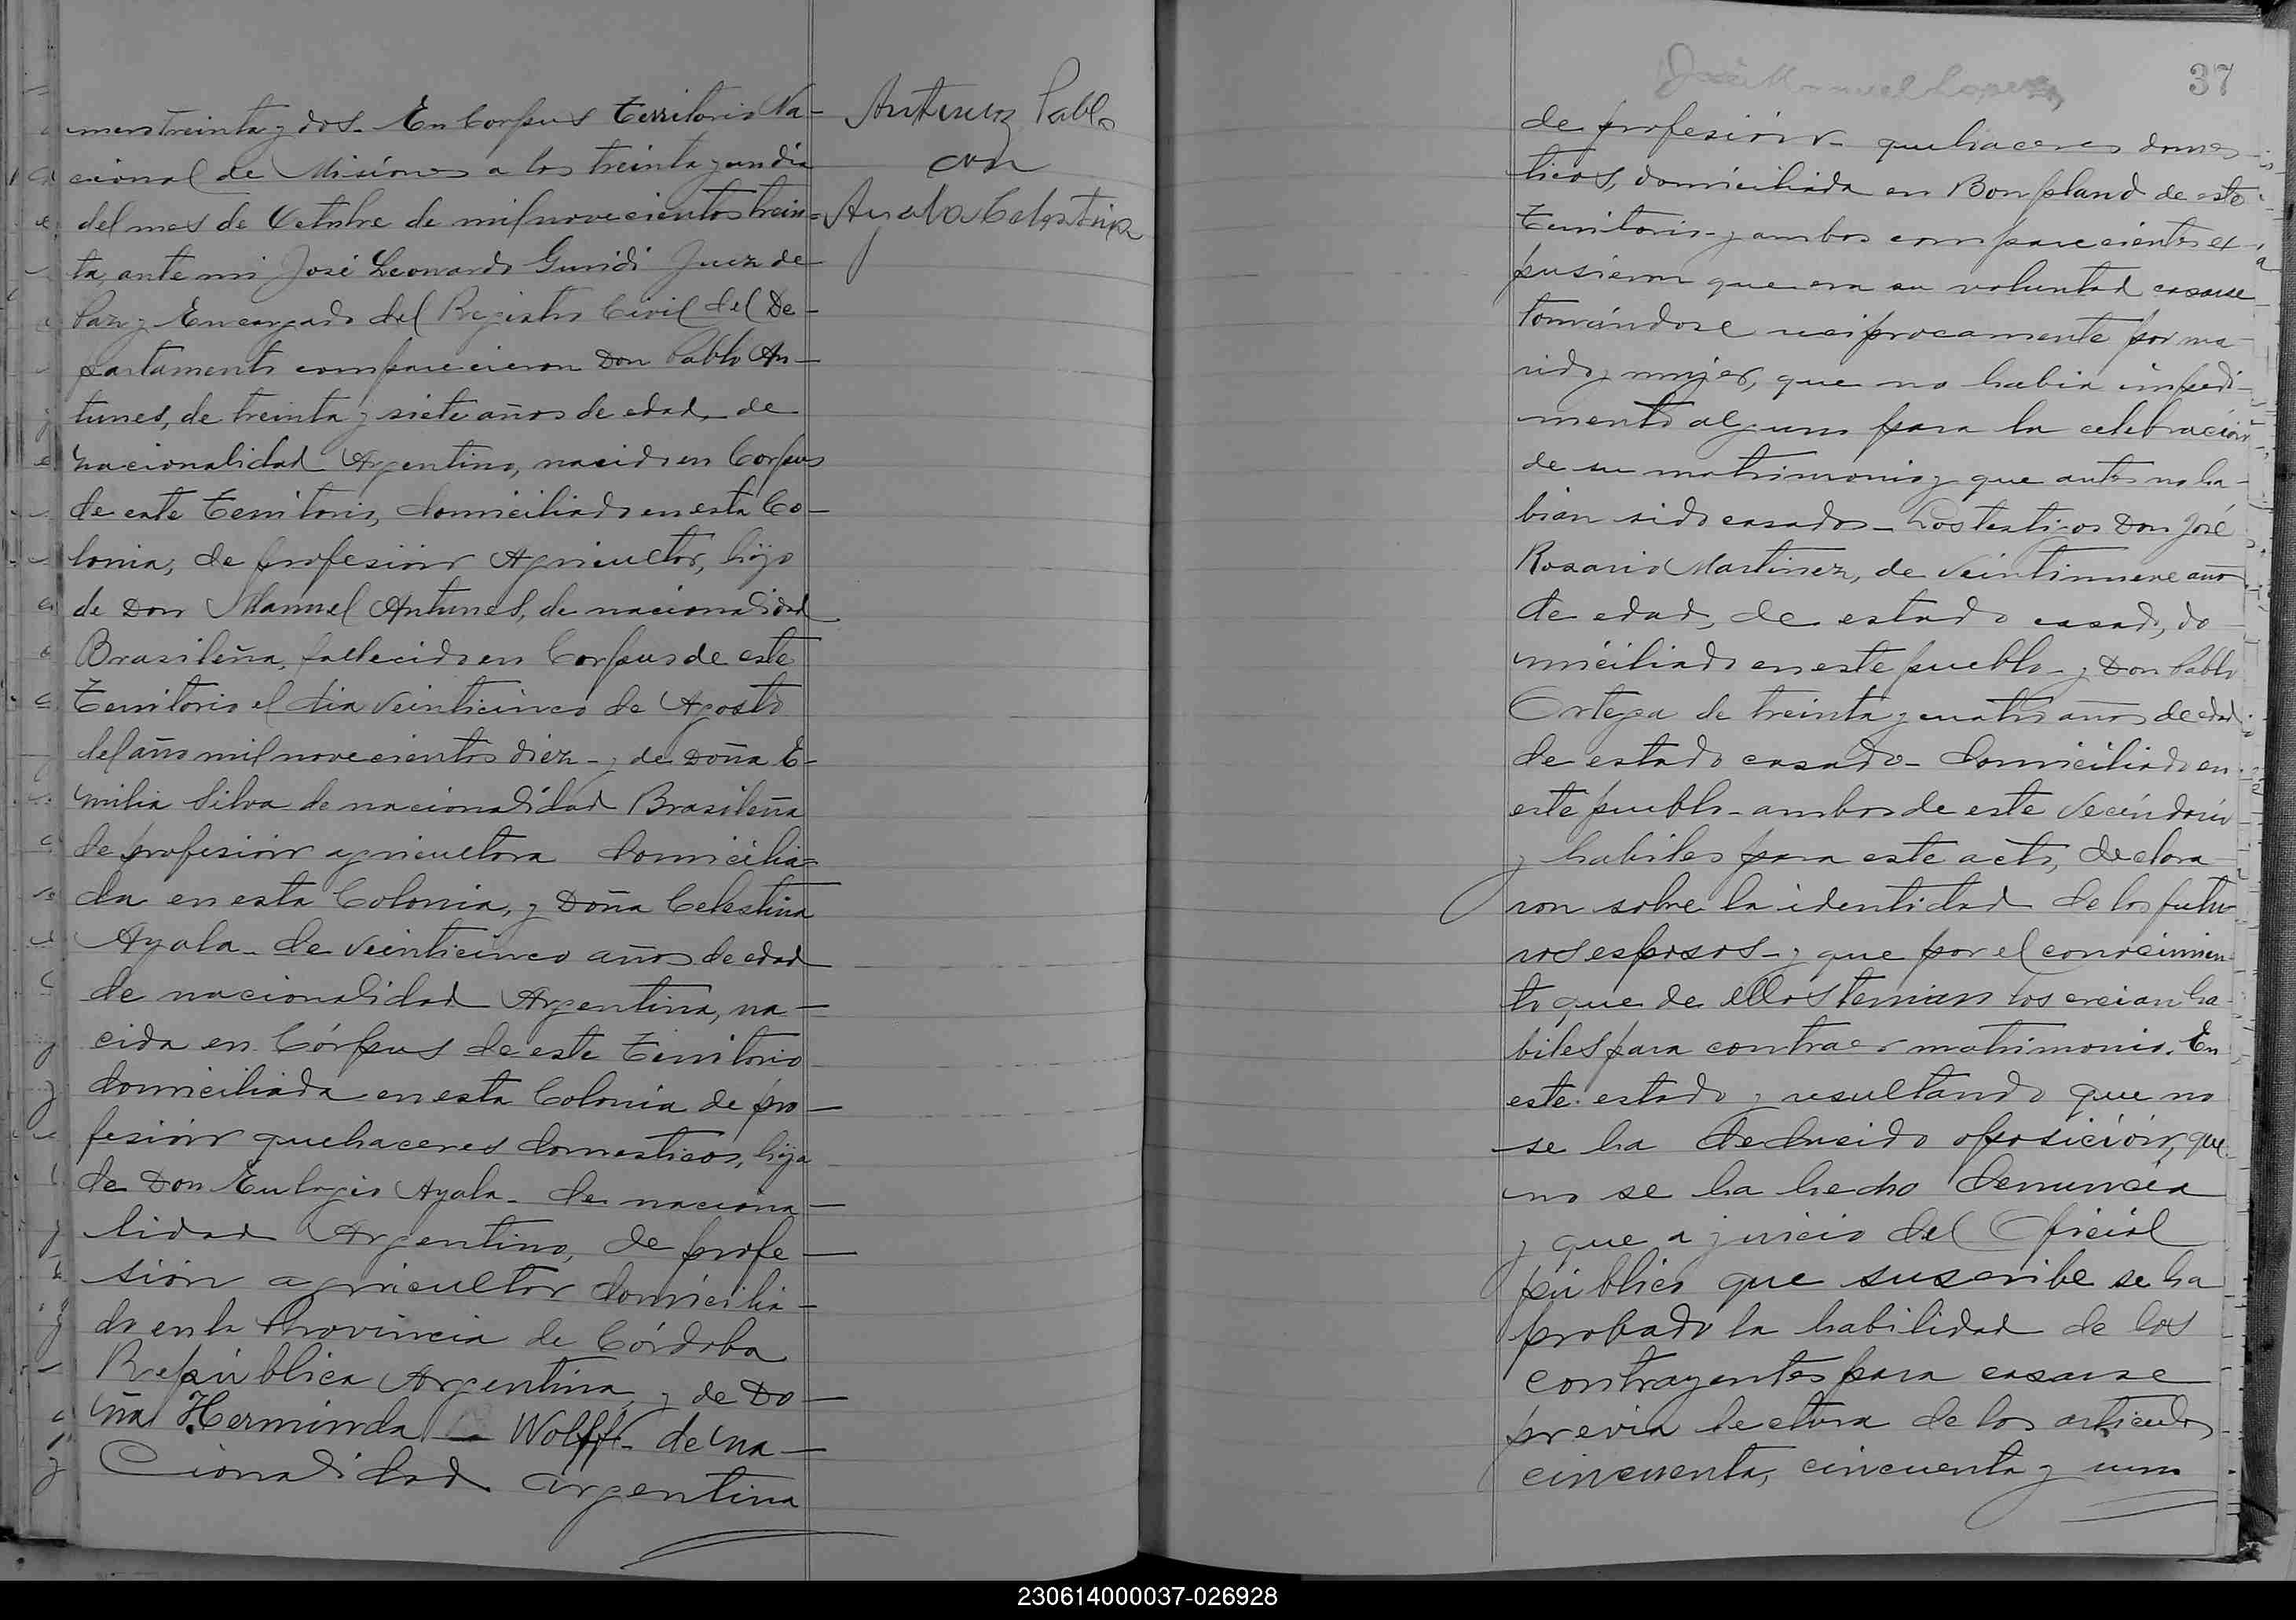 mero treinta y dos. En Corpus Territorio Na-
cional de Misiones a los treinta y un dia
del mes de Octubre de mil novecientos trein-
ta, ante mi José Leonardo Guridi Juez de
Paz y Encargado del Registro Civil del De-
partamento comparecieron Don Pablo An-
tunes, de treinta y siete años de edad, de
nacionalidad Argentino, nacido en Corpus
de este Territorio, domiciliado en esta Co-
lonia, de profesión Agricultor, hijo
de Don Manuel Antunes, de nacionalidad
Brasileña, fallecido en Corpus de este
Territorio el dia veinticinco de Agosto
del año mil novecientos diez - y de Doña E-
milia Silva de nacionalidad Brasileña
de profesión agricultora domicilia-
da en esta Colonia, y Doña Celestina
Ayala - de veinticinco años de edad
de nacionalidad Argentina, na-
cida en Córpus de este Territorio
domiciliada en esta Colonia de pro-
fesión quehaceres domesticos, hija
de Don Eulogio Ayala - de naciona-
lidad Argentino, de profe-
sión agricultor domicilia-
do en la Provincia de Córdoba
República Argentina, y de Do-
ña Herminda Wolff - de na-
cionalidad argentina
Antunez Pablo
con
Ayala Celestina
José Manuel Lopez
37
de profesión - quehaceres domes-
ticos, domiciliada en Bonpland de este
Territorio - y ambos comparecientes ex-
pusieron que era su voluntad casarse
tomándose reciprocamente por ma-
rido y mujer, que no habia impedi-
mento alguno para la celebración
de su matrimonio y que antes no ha-
bian sido casados - Los testigos Don José
Rosario Martinez, de veintinueve años
de edad, de estado casado, do-
miciliado en este pueblo - y Don Pablo
Ortega de treinta y cuatro años de edad
de estado casado - domiciliado en
este pueblo - ambos de este vecindario
y habiles para este acto, declara-
ron sobre la identidad de los futu-
ros esposos - y que por el conocimien-
to que de ellos tenian los creian ha-
biles para contraer matrimonio. En
este estado y resultando que no
se ha deducido oposición, que
no se ha hecho denuncia
y que a juicio del Oficial
público que suscribe se ha
probado la habilidad de los
contrayentes para casarse
previa lectura de los articulos
cincuenta, cincuenta y uno
230614000037-026928